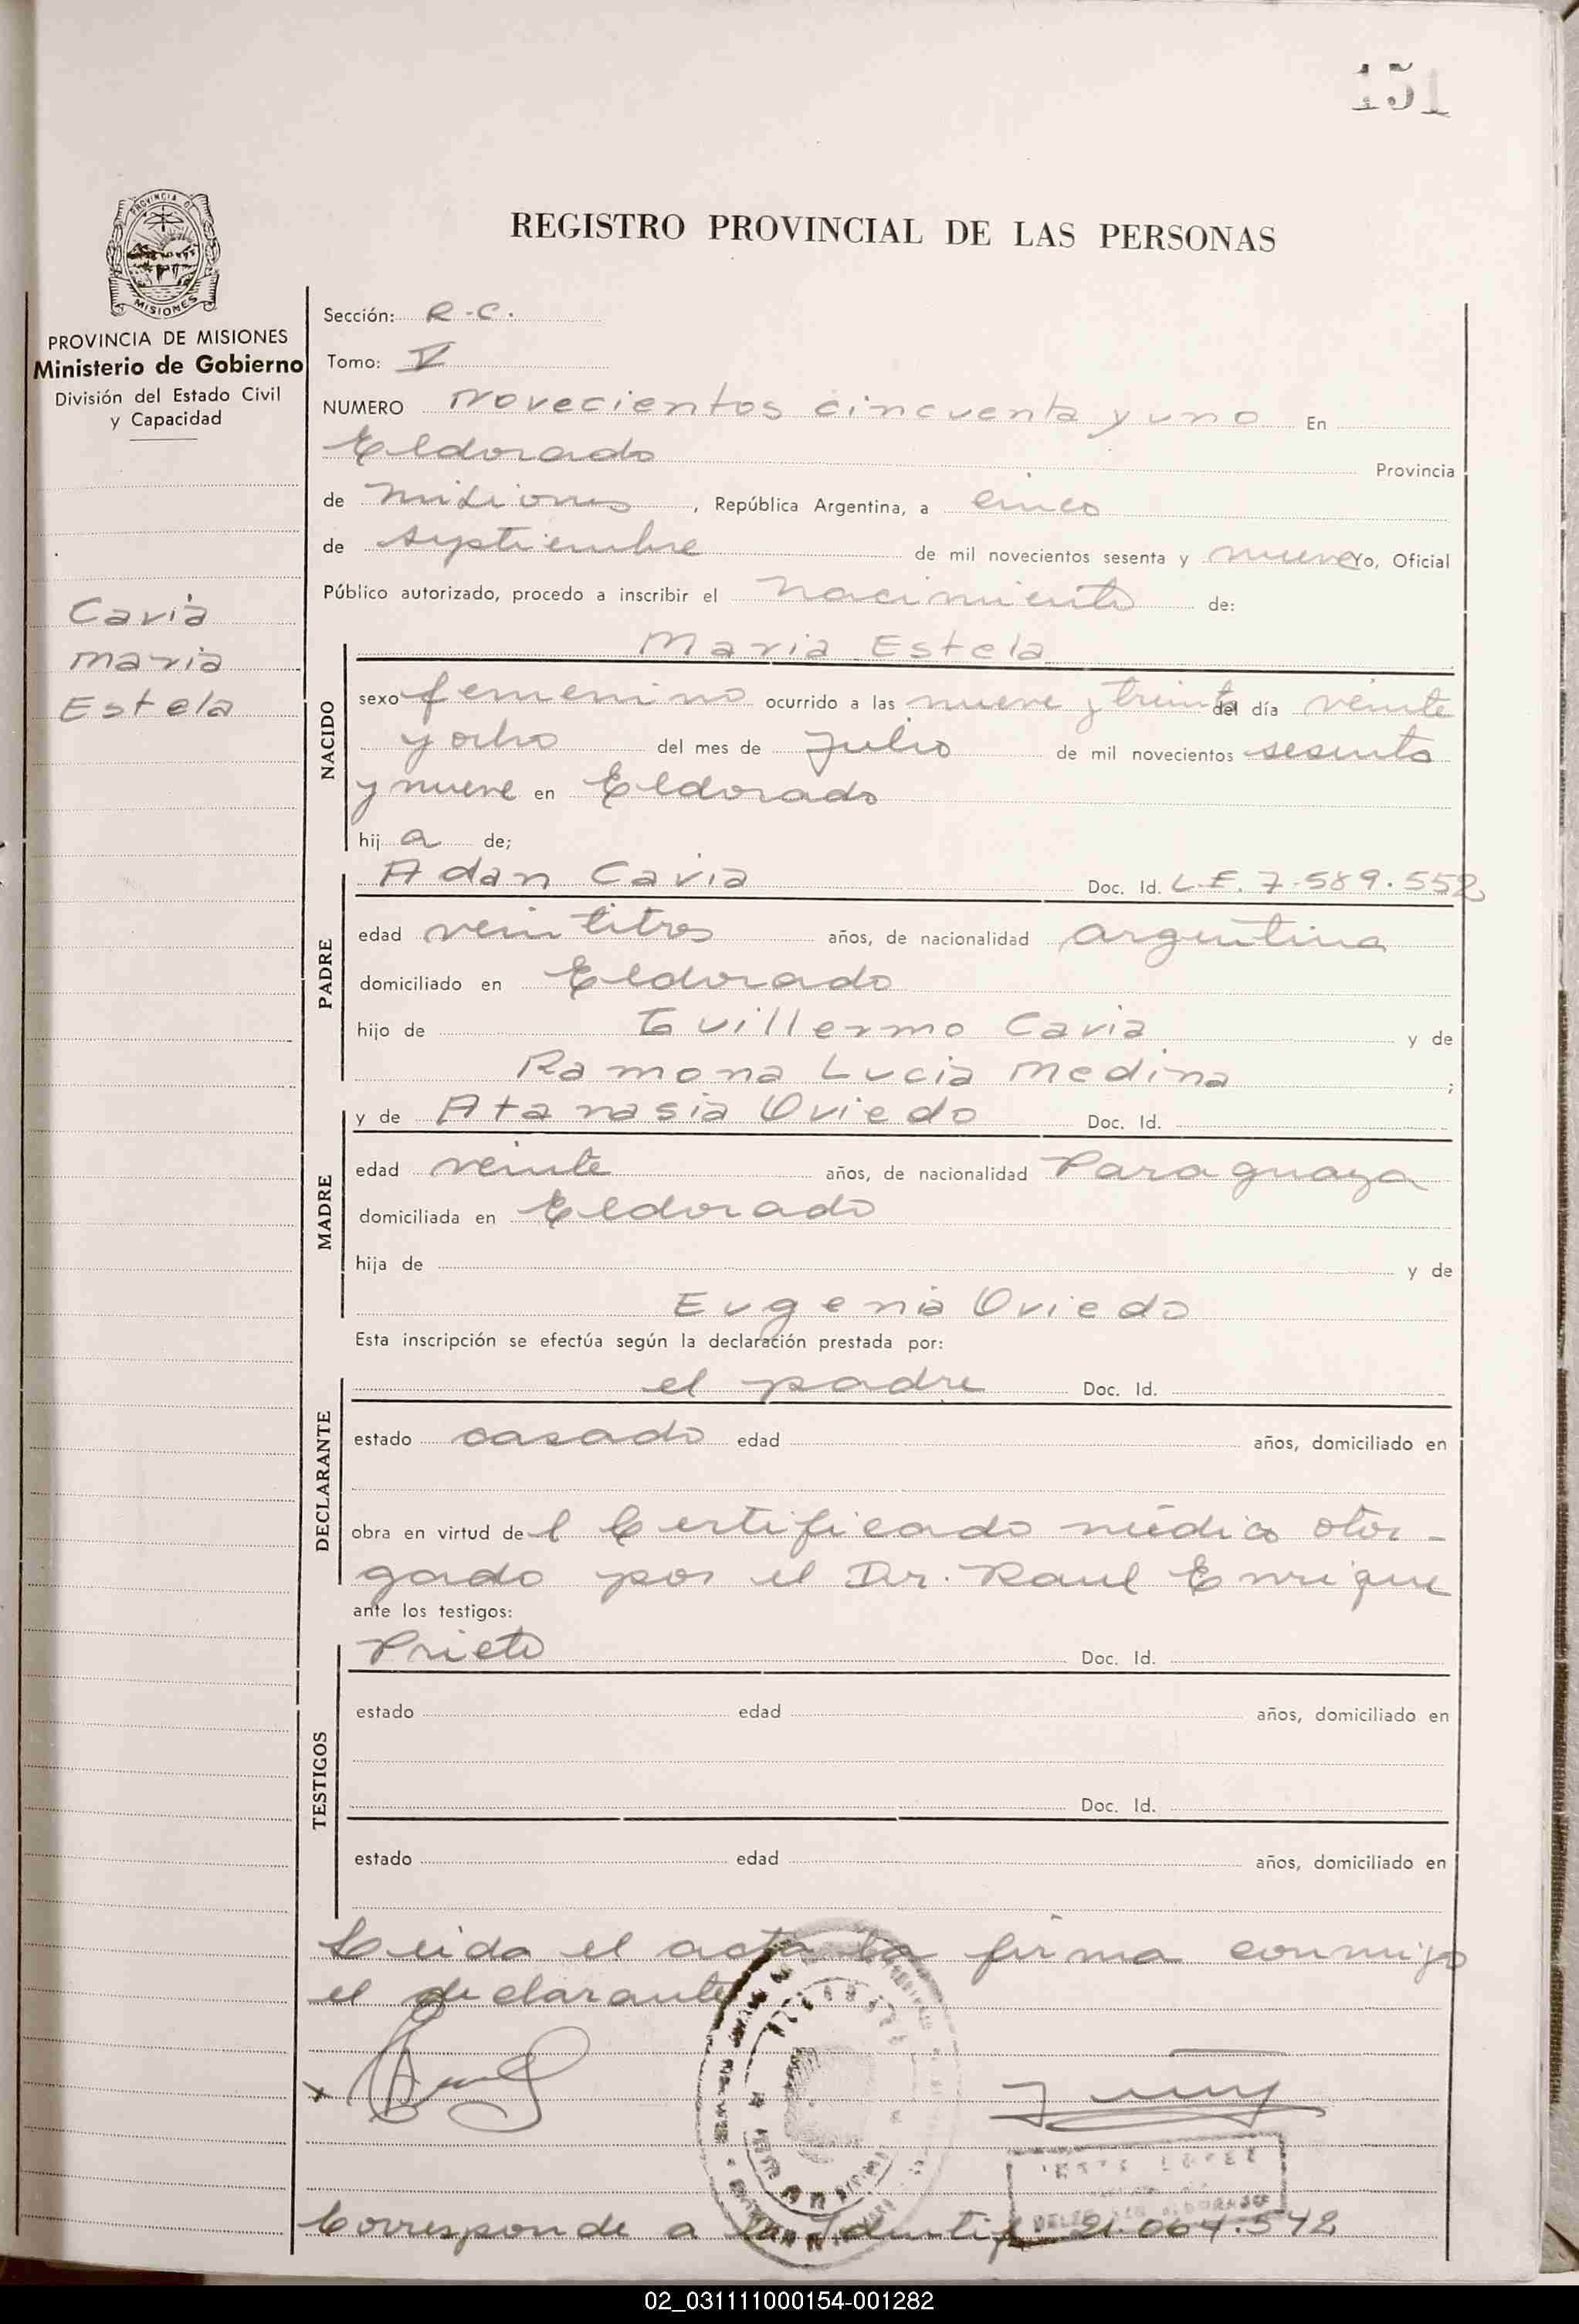 151
PROVINCIA DE
MISIONES
PROVINCIA DE MISIONES
Ministerio de Gobierno
División del Estado Civil
y Capacidad
Cavia
Maria
Estela
REGISTRO PROVINCIAL DE LAS PERSONAS
Sección: R-C.
Tomo: V
NUMERO Novecientos cincuenta y uno En
Eldorado Provincia
de Misiones, República Argentina, a cinco
de septiembre de mil novecientos sesenta y nueve Yo, Oficial
Público autorizado, procedo a inscribir el Nacimiento de:
Maria Estela
NACIDO
sexo femenino ocurrido a las nueve y treinta del día veinte
y ocho del mes de Julio de mil novecientos sesenta
y nueve en Eldorado
hij a de;
Adan Cavia Doc. Id. L.E. 7.589.552
PADRE
edad veintitres años, de nacionalidad argentina
domiciliado en Eldorado
hijo de Guillermo Cavia y de
Ramona Lucia Medina ;
y de Atanasia Oviedo Doc. Id.
MADRE
edad veinte años, de nacionalidad Paraguaya
domiciliada en Eldorado
hija de y de
Eugenia Oviedo
Esta inscripción se efectúa según la declaración prestada por:
el padre Doc. Id.
DECLARANTE
estado casado edad años, domiciliado en
obra en virtud de l Certificado médico otor-
gado por el Dr. Raul Enrique
ante los testigos:
Prieto Doc. Id.
TESTIGOS
estado edad años, domiciliado en
Doc. Id.
estado edad años, domiciliado en
Leida el acta la firma conmigo
el declarante
Corresponde a Identif 21.064.542
02_031111000154-001282